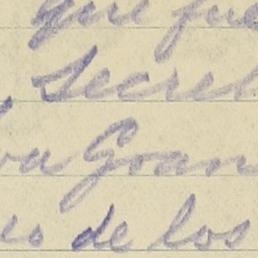 que fue
Secret
va Gran
es de los